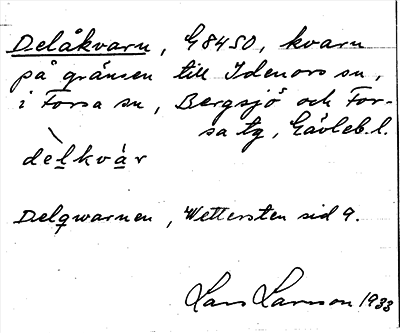 Delåkvarn, G8450, kvarn
på gränsen till Idenors sn,
i Forsa sn, Bergsjö och For-
sa tg, Gävleb. l.
de̱lkva̱r
Delqwarnen, Wettersten sid 9.
Lars Larsson 1933